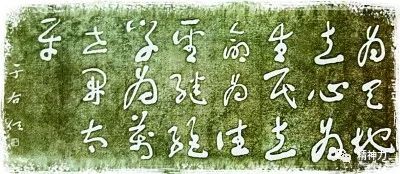 為天地
立心為
生民立
命為往
聖繼絕
學為萬
世開太
平
于右任
精神刀